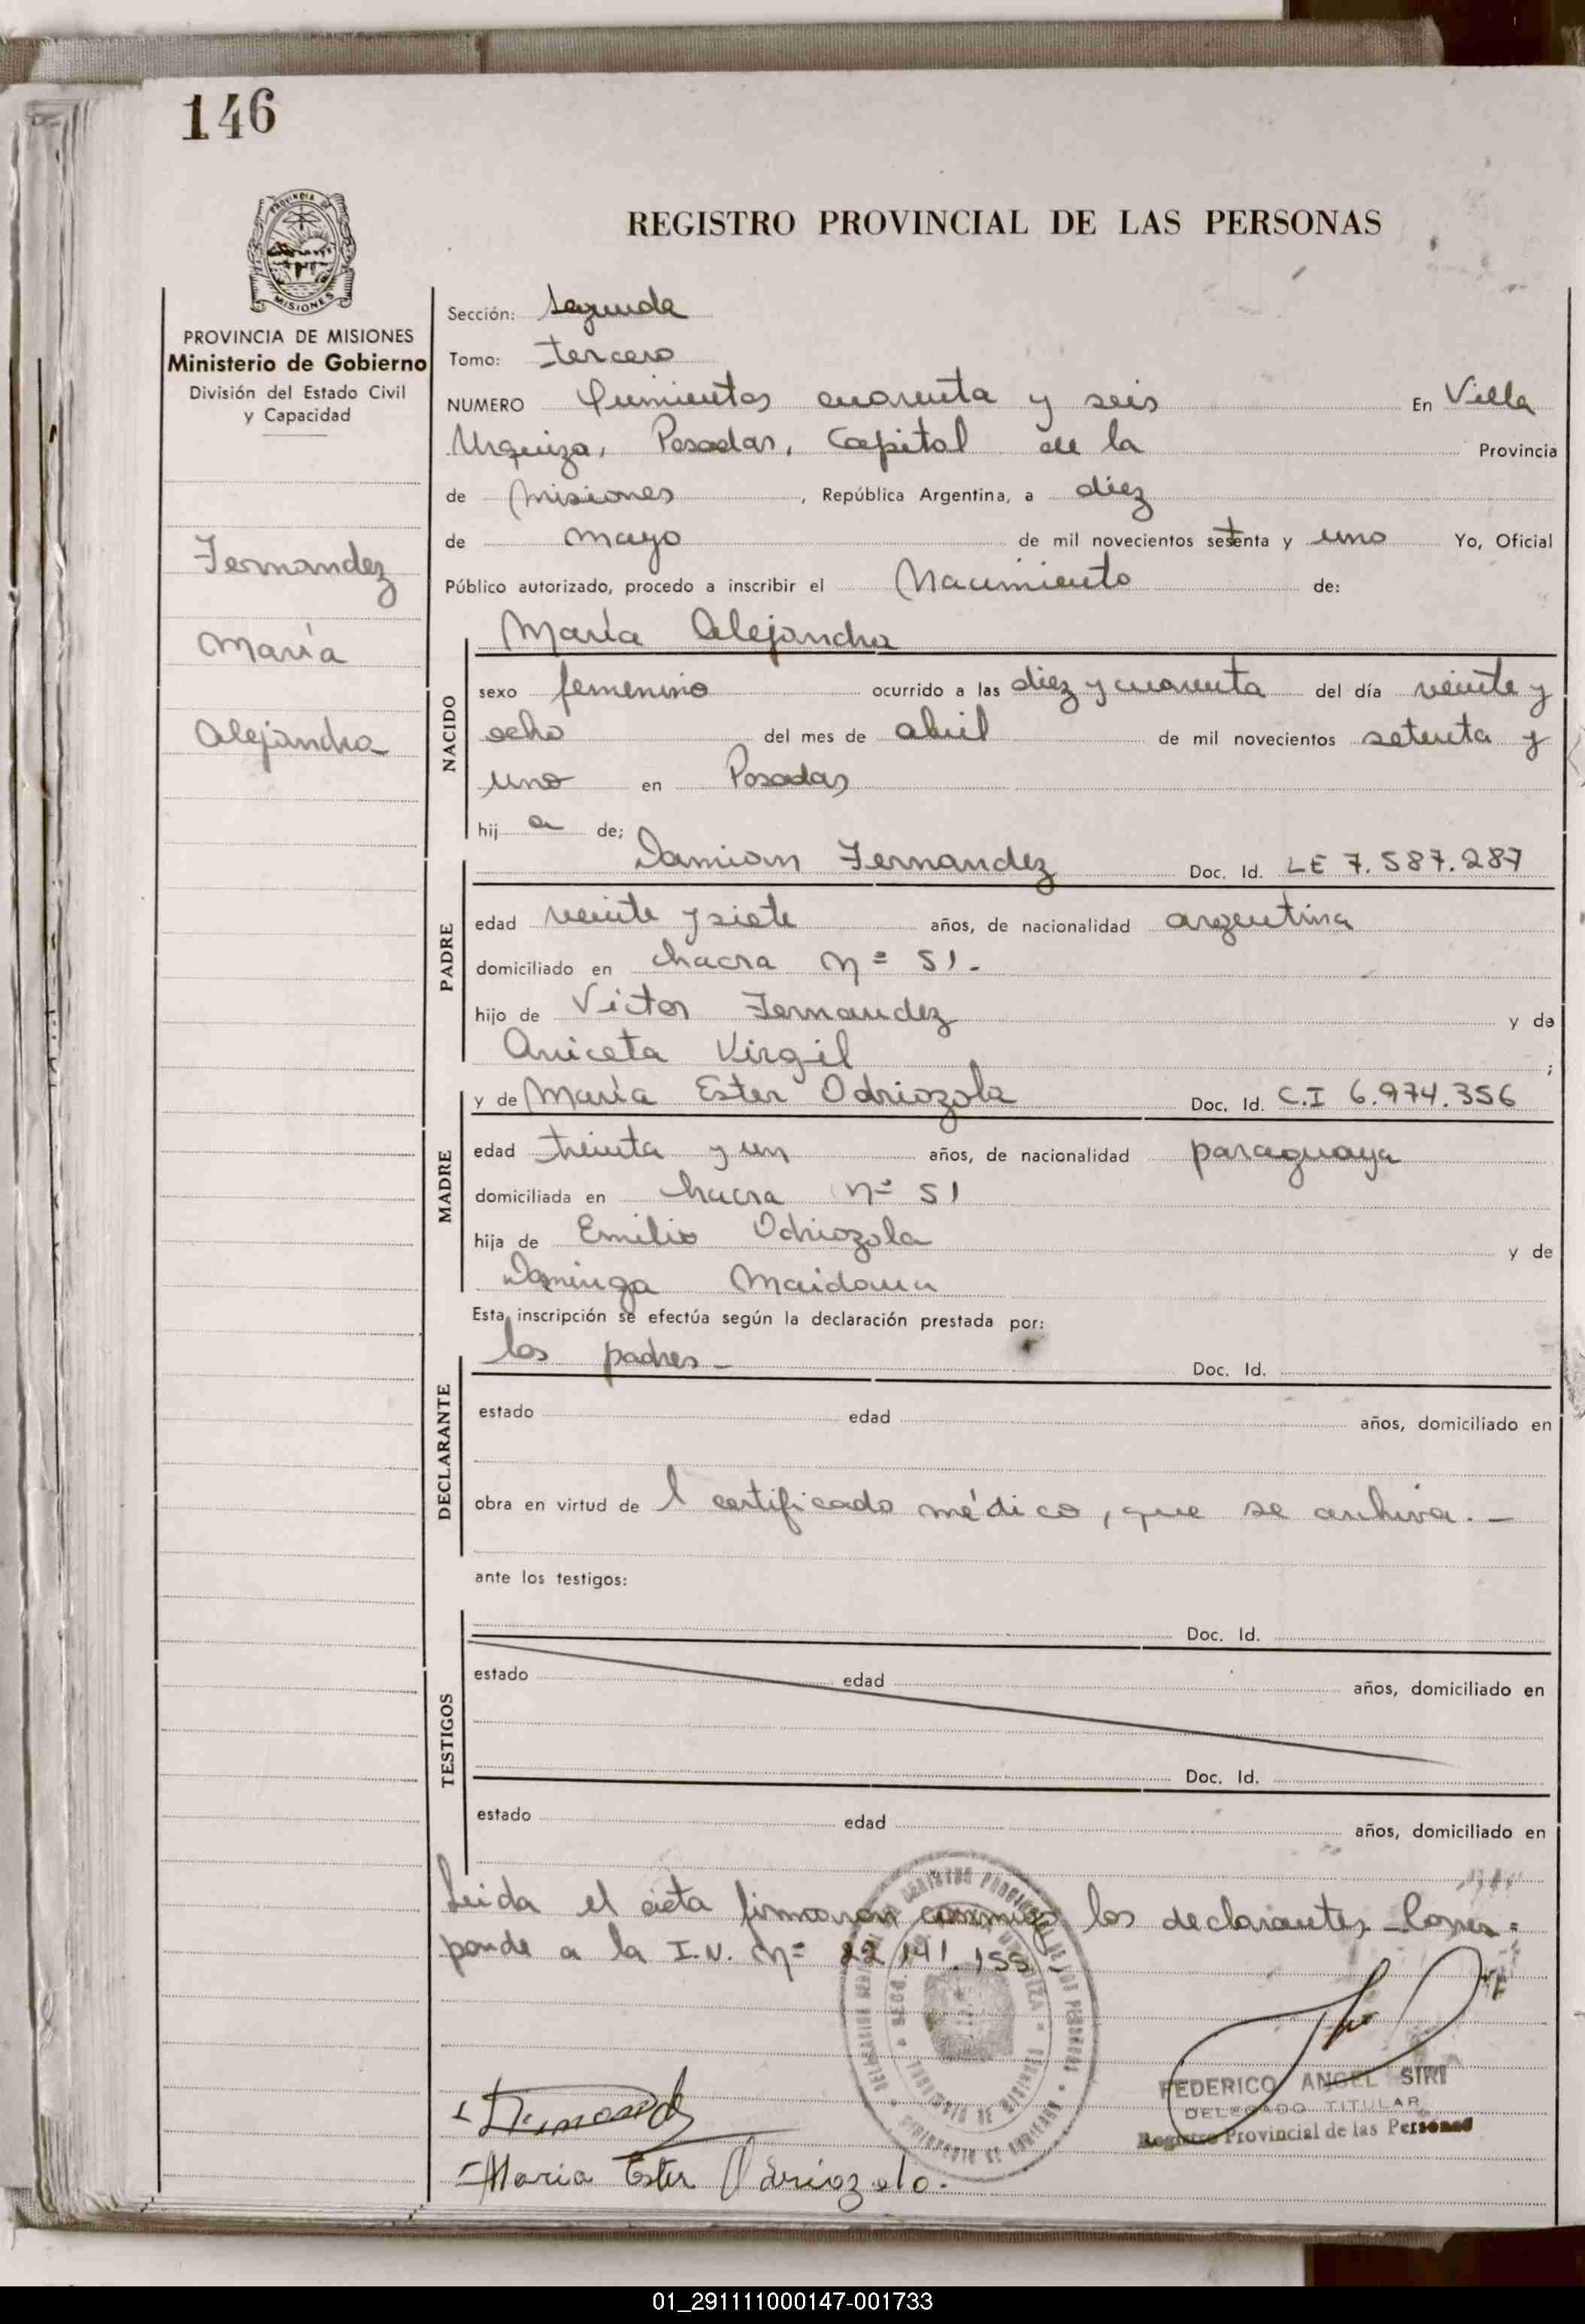 146
REGISTRO PROVINCIAL DE LAS PERSONAS
PROVINCIA DE MISIONES
Ministerio de Gobierno
División del Estado Civil
y Capacidad
Fernandez
María
Alejandra
Sección: Segunda
Tomo: tercero
NUMERO Quinientos cuarenta y seis En Villa
Urquiza, Posadas, Capital de la Provincia
de Misiones, República Argentina, a diez
de mayo de mil novecientos setenta y uno Yo, Oficial
Público autorizado, procedo a inscribir el Nacimiento de:
María Alejandra
NACIDO
sexo femenino ocurrido a las diez y cuarenta del día veinte y
ocho del mes de abril de mil novecientos setenta y
uno en Posadas
hij a de;
Damian Fernandez Doc. Id. LE 7.587.287
PADRE
edad veinte y siete años, de nacionalidad argentina
domiciliado en chacra nº 51.
hijo de Victor Fernandez y de
Aniceta Virgil ;
y de María Ester Odriozola Doc. Id. C.I 6.974.356
MADRE
edad treinta y un años, de nacionalidad paraguaya
domiciliada en chacra nº 51
hija de Emilio Odriozola y de
Dominga Maidana
Esta inscripción se efectúa según la declaración prestada por:
los padres - Doc. Id.
DECLARANTE
estado edad años, domiciliado en
obra en virtud de l certificado médico, que se archiva. -
ante los testigos:
Doc. Id.
TESTIGOS
estado edad años, domiciliado en
Doc. Id.
estado edad años, domiciliado en
Leida el acta firmaron conmigo los declarantes - Corres=
ponde a la I.N. nº 22.141.155
FEDERICO ANGEL SIRI
DELEGADO TITULAR
Registro Provincial de las Personas
Maria Ester Odriozola.
01_291111000147-001733